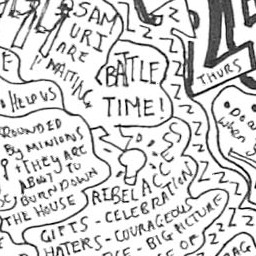 SAM
URI
ARE
WAITING
BATTLE
TIME!
THURS
HELP US
BY MINIONS
+ THEY ARE
ABOUT TO
BURN DOWN
THE HOUSE
REBEL ACCESS
GIFTS - CELEBRATION
HATERS - COURAGEOUS
BIG PICTURE
OF